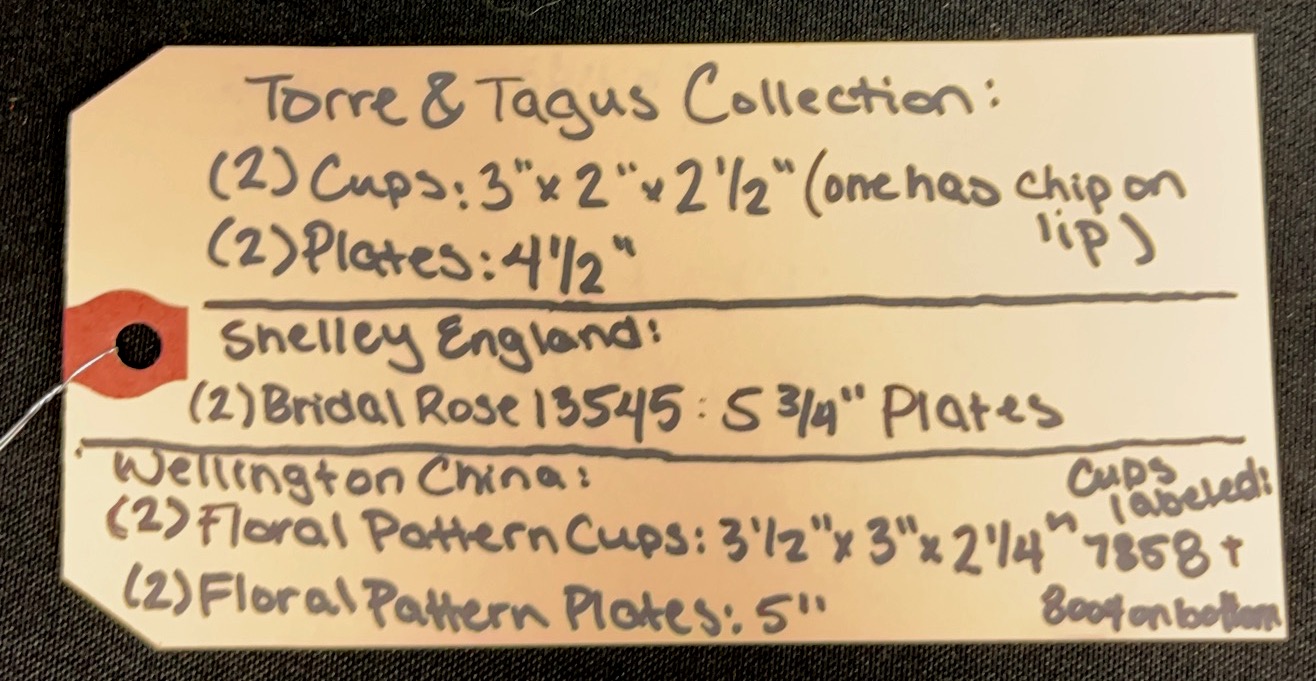 Torre & Tagus Collection:
(2) Cups: 3" x 2" x 2 1/2" (one has chip on
lip)
(2) Plates: 4 1/2"
Shelley England:
(2) Bridal Rose 13545: 5 3/4" Plates
Wellington China:
(2) Floral Pattern Cups: 3 1/2" x 3" x 2 1/4"
(2) Floral Pattern Plates: 5"
Cups
labeled:
7858 +
8004 on bottom